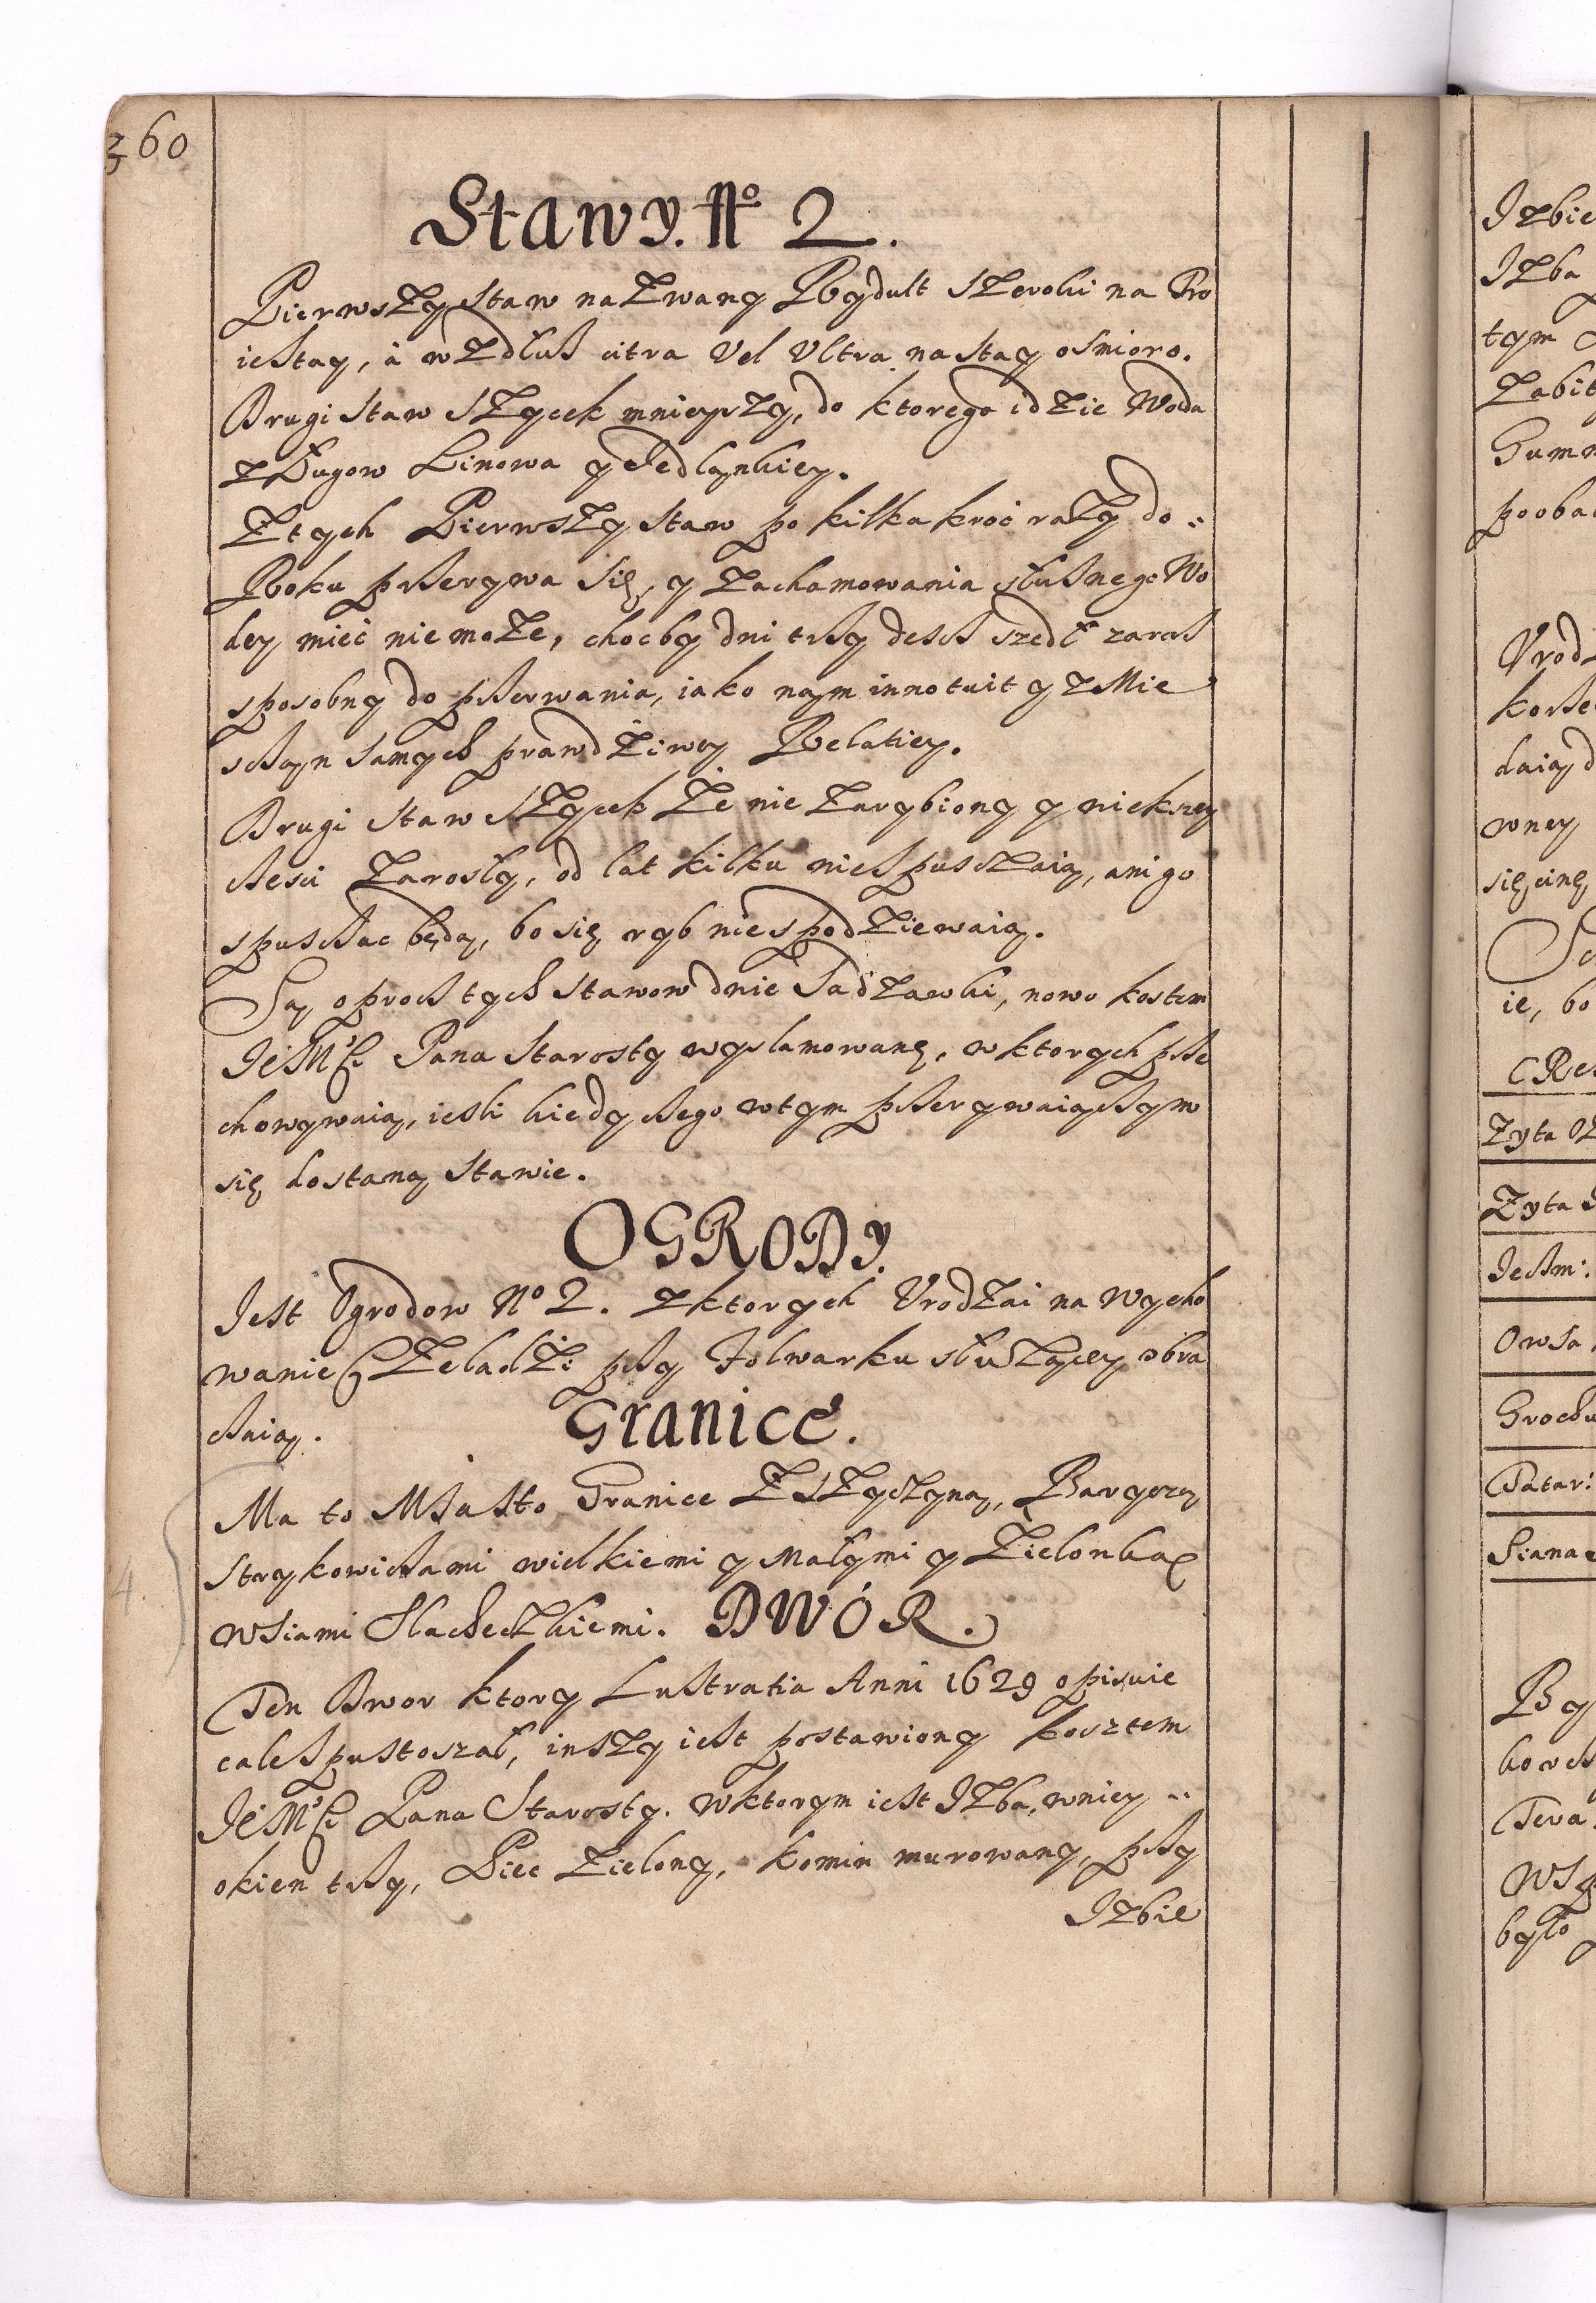 360
Stawy. No 2.
Pierwszy Staw nazwany Rydult szeroki na Tro
ie Stay, á wzdłusz citra vel Vltra na Stay ośmioro.
Drugi Staw Szycek mnieyszy, do ktorego idzie Woda
z Ługow Linowa y Jedlanki.
Z tych Pierwszy Staw po kilka kroć razy do
Roku przerywa się, y zachamowania słusznego Wo
dey mieć nie może, choćby dni trzy descz szedł zaraz
sposobny do przerwania, iako nam innotuit y z Mie
sczan samych prawdziwey Relatiey.
Drugi Staw Szycek że nie zarybiony y w iekszey
części zarosły, od lat kilku nie spusczaią, ani go
spusczać będą, bo się ryb nie spodziewaią.
Są oprocz tych Stawow dwie Sadzawki, nowo kosztem
JeMści Pana Starosty wyszlamowane, w ktorych prze
chowywaią, iesli kiedy czego w tym przerywaiączym
się dostaną Stawie.
OGRODY.
Jest Ogrodow No 2. z ktorych Vrodzai na wycho
wanie Czeladzi przy Folwarku służącey obra
czaią.
Granice.
Ma to Miasto Granice z Szyczyną, Baryczą
Strykowiczami wielkiemi y małymi y Zielonką
wsiami Slacheczkiemi. DWÓR.
Ten Dwor ktory Lustratia Anni 1629 opisuie
cale spustoszał, inszy iest postawiony kosztem
JeMści Pana Starosty. w ktorym iest Izba, w niey
okien trzy, Piec zielony, komin murowany, przy
Izbie
4.
Izbie
Izba
tym
Zabit
Gumn
poobal
Vrodz
korze
daią d
wney
się, cinę
ie, bo
CRes
Zyta Oz
Zyta
Jeczm:
Owsa
Grochu
Tatar:
Siana
By
Tera
było